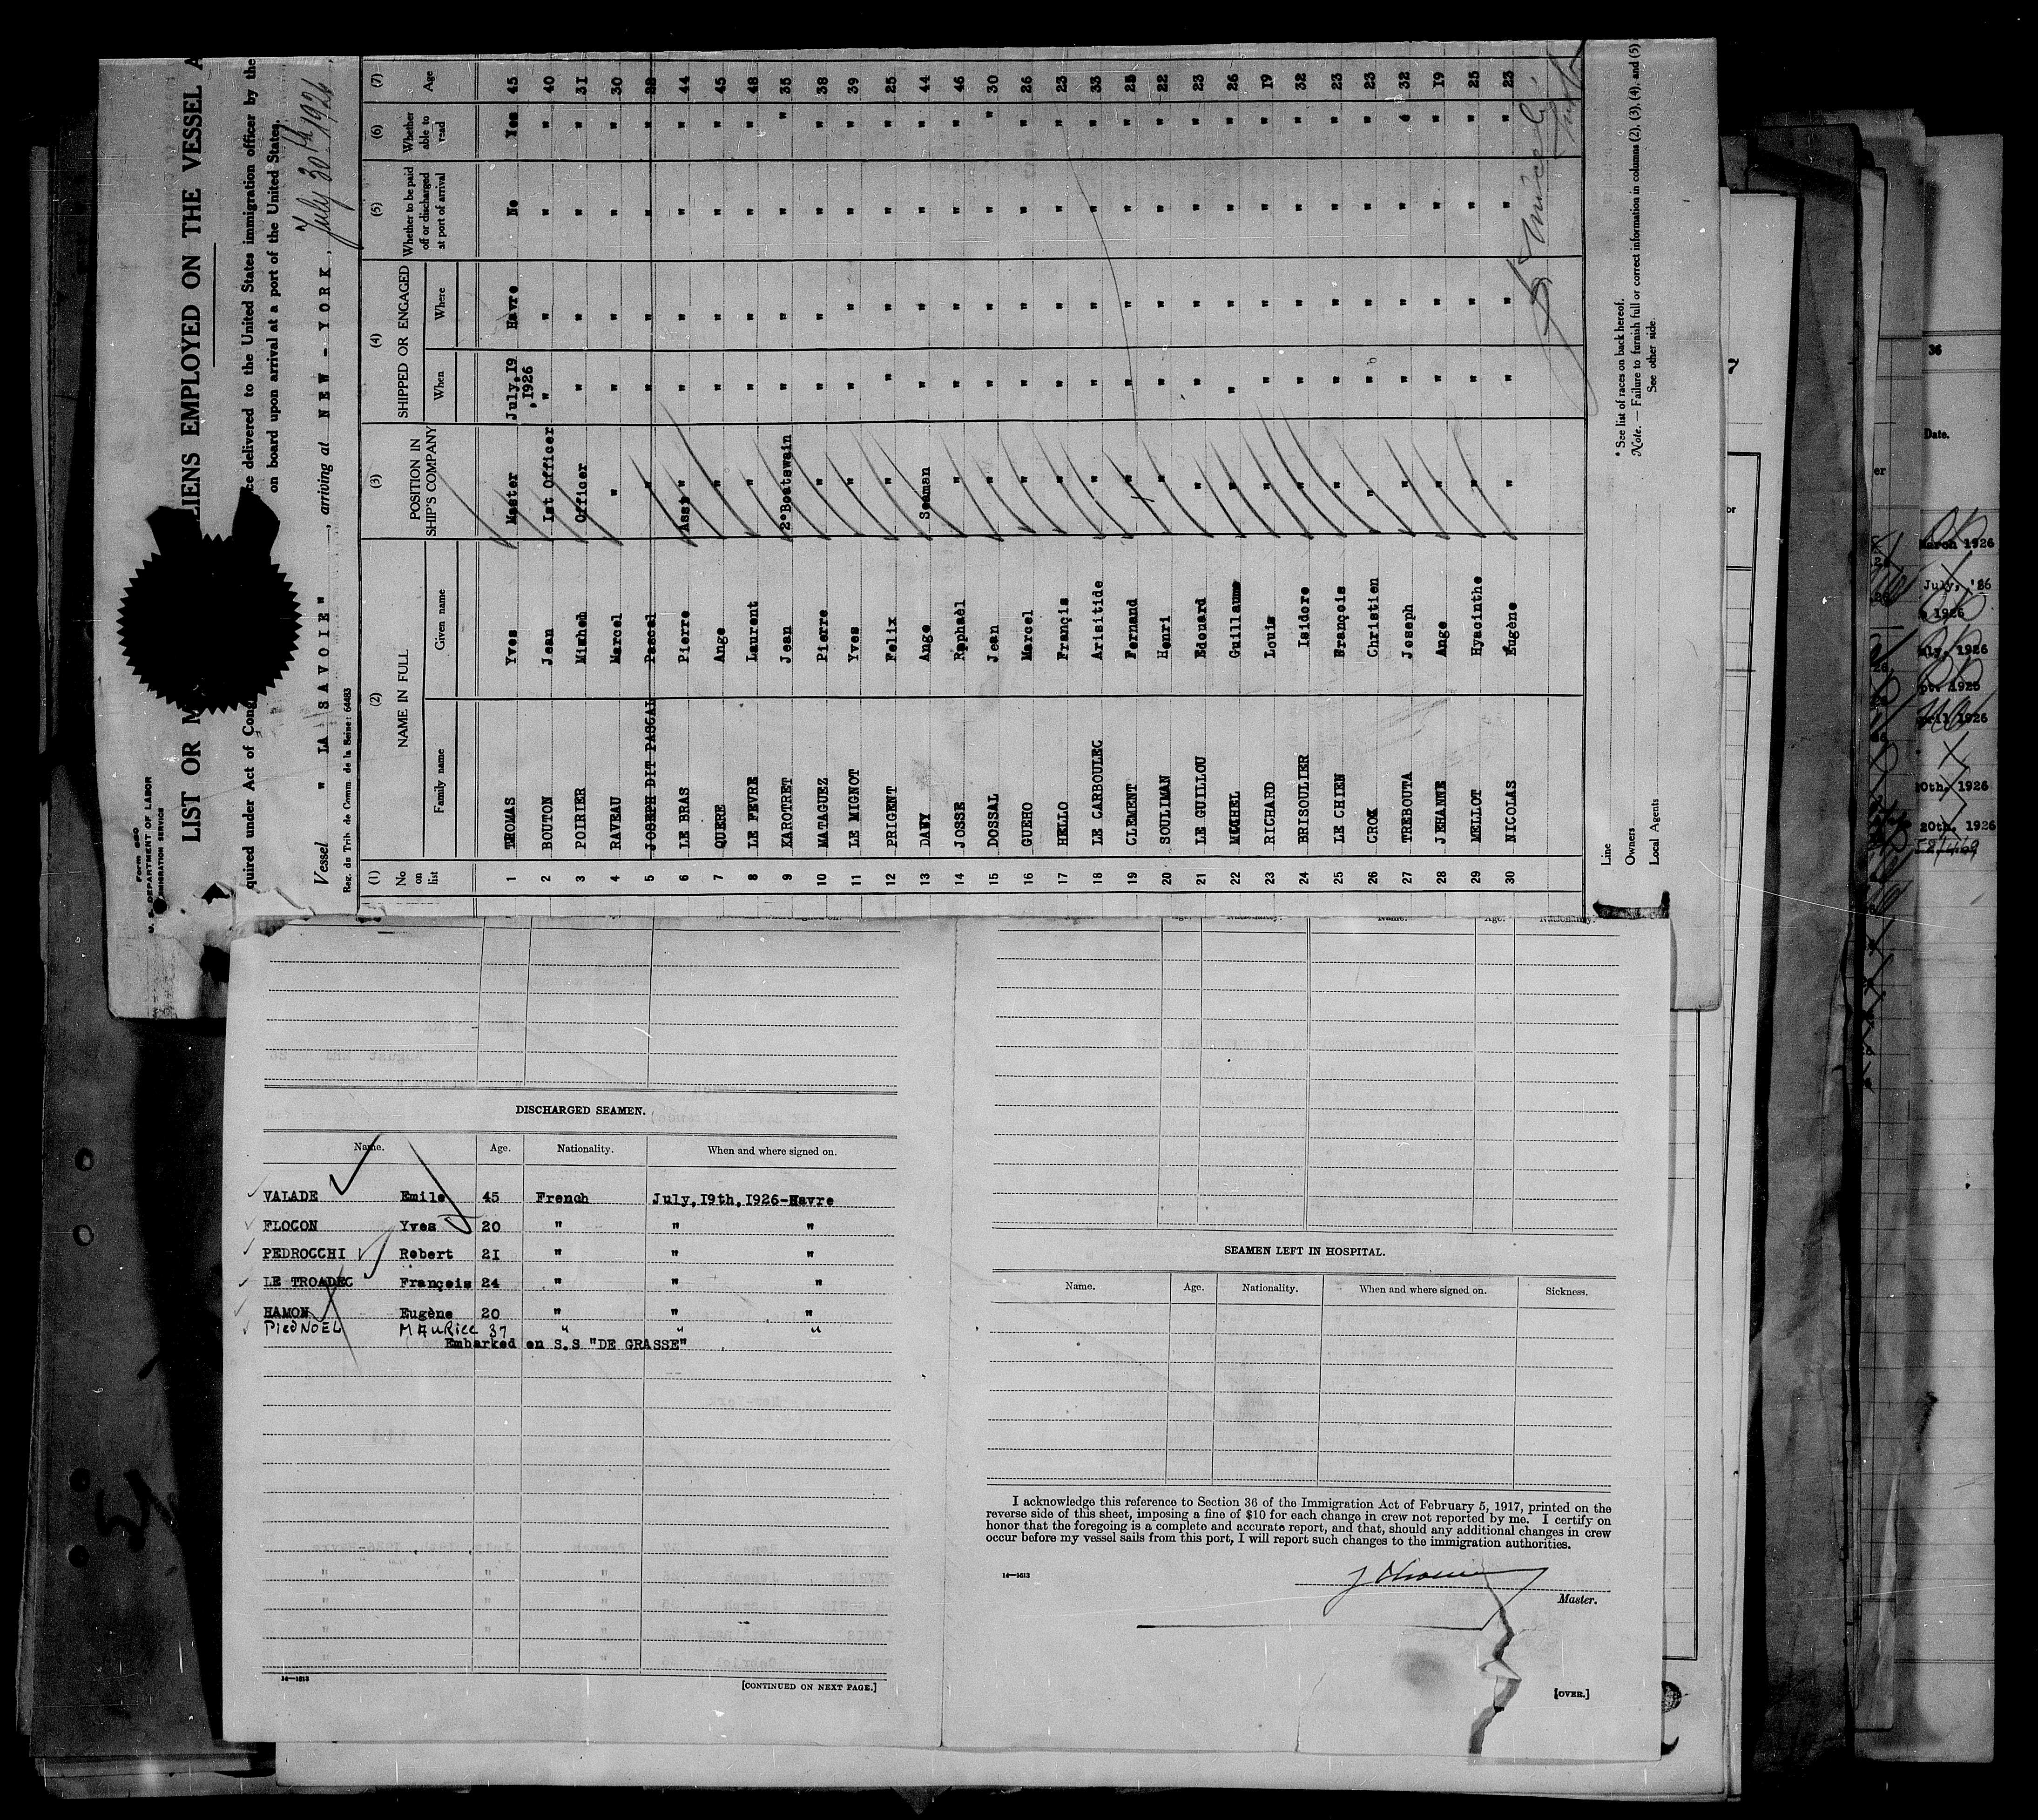 Form 680
U. S. DEPARTMENT OF LABOR
IMMIGRATION SERVICE
LIST OR M LIENS EMPLOYED ON THE VESSEL A
quired under Act of Cong ce delivered to the United States immigration officer by the
on board upon arrival at a port of the United States.
Vessel " LA SAVOIE " , arriving at NEW - YORK , July 30th 1926 ,
Reg. du Trib. de Comm. de la Seine : 64483
(1) (2) (3) (4) (5) (6) (7)
No on list NAME IN FULL POSITION IN SHIP'S COMPANY SHIPPED OR ENGAGED Whether to be paid off or discharged at port of arrival Whether able to read Age
Family name Given name When Where
1 THOMAS Yves Master July,19, 1926 Havre No Yes 45
2 BOUTON Jean 1st Officer " " " " 40
3 POIRIER Misheh Officer " " " " 31
4 RAVEAU Marcel " " " " " 30
5 JOSEPH DIT PASCAL Pascal " " " " " 28
6 LE BRAS Pierre Asst " " " " " 44
7 QUERE Ange " " " " " 45
8 LE FEVRE Laurent " " " " " 48
9 KAROTRET Jean 2°Boatswain " " " " 35
10 MATAGUEZ Pierre " " " " " 38
11 LE MIGNOT Yves " " " " " 39
12 PRIGENT Felix " " " " " 25
13 DANY Ange Seaman " " " " 44
14 JOSSE Raphaèl " " " " " 46
15 DOSSAL Jean " " " " " 30
16 GUEHO Marcel " " " " " 26
17 HELLO Françis " " " " " 23
18 LE CARBOULEC Arisitide " " " " " 33
19 CLEMENT Fernand " " " " " 25
20 SOULIMAN Henri " " " " " 22
21 LE GUILLOU Edouard " " " " " 23
22 MICHEL Guillaume " " " " " 26
23 RICHARD Louis " " " " " 19
24 BRISOULIER Isidore " " " " " 32
25 LE CHIEN François " " " " " 23
26 CROK Christien " " " " " 23
27 TREBOUTA Joseph " " " " " 32
28 JEHANNE Ange " " " " " 19
29 MELLOT Hyacinthe " " " " " 25
30 NICOLAS Eugène " " " " " 23
Line
Owners
Local Agents
* See list of races on back hereof.
Note. — Failure to furnish full or correct information in columns (2), (3), (4), and (5)
See other side.
DISCHARGED SEAMEN.
Name. Age. Nationality. When and where signed on.
VALADE Emile 45 French July,19th,1926-Havre
FLOCON Yves 20 " " "
PEDROCCHI Robert 21 " " "
LE TROADEC François 24 " " "
HAMON Eugène 20 " " "
PiedNOEL MAuRice 37 " " "
Embarked on S.S "DE GRASSE"
14—1613
[CONTINUED ON NEXT PAGE.]
Name. Age. Nationality.
SEAMEN LEFT IN HOSPITAL.
Name. Age. Nationality. When and where signed on. Sickness.
I acknowledge this reference to Section 36 of the Immigration Act of February 5, 1917, printed on the
reverse side of this sheet, imposing a fine of $10 for each change in crew not reported by me. I certify on
honor that the foregoing is a complete and accurate report, and that, should any additional changes in crew
occur before my vessel sails from this port, I will report such changes to the immigration authorities.
14—1613
Master.
[OVER.]
7
or
36
er
Date.
March 1926
July, '26
1926
uly, 1926
pt. 1925
pril 1926
20th, 1926
20th, 1926